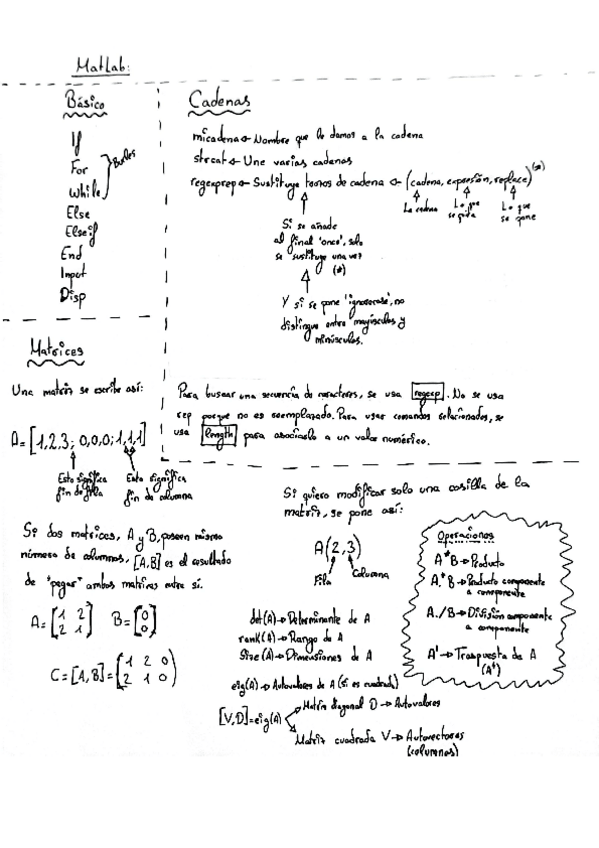 MatLab:
Básico
If
For
While
Bucles
Else
Elseif
End
Input
Disp
Cadenas
micadena → Nombre que le damos a la cadena
strcat → Une varias cadenas
regexprep → Sustituye trozos de cadena → (cadena, expresión, replace)(*)
La cadena
Lo que se quita
Lo que se pone
Si se añade
al final 'once', solo
se sustituye una vez
(*)
Y si se pone 'ignorecase', no
distingue entre mayúsculas y
minúsculas.
Para buscar una secuencia de caracteres, se usa regexp. No se usa
rep porque no es reemplazado. Para usar comandos relacionados, se
usa length para asociarlo a un valor numérico.
Matrices
Una matriz se escribe así:
A=[1,2,3; 0,0,0; 1,1,1]
Esto significa
fin de fila
Esto significa
fin de columna
Si dos matrices, A y B, poseen mismo
número de columnas, [A,B] es el resultado
de "pegar" ambas matrices entre sí.
A=[1 2
2 1]
B=[0
0]
C=[A,B]=(1 2 0
2 1 0)
Si quiero modificar solo una casilla de la
matriz, se pone así:
A(2,3)
Fila
Columna
det(A) → Determinante de A
rank(A) → Rango de A
Size(A) → Dimensiones de A
eig(A) → Autovalores de A (si es cuadrada)
[V,D]=eig(A)
Matriz diagonal D → Autovalores
Matriz cuadrada V → Autovectores
(columnas)
Operaciones
A*B → Producto
A.*B → Producto componente
a componente
A./B → División componente
a componente
A' → Traspuesta de A
(Aᵗ)